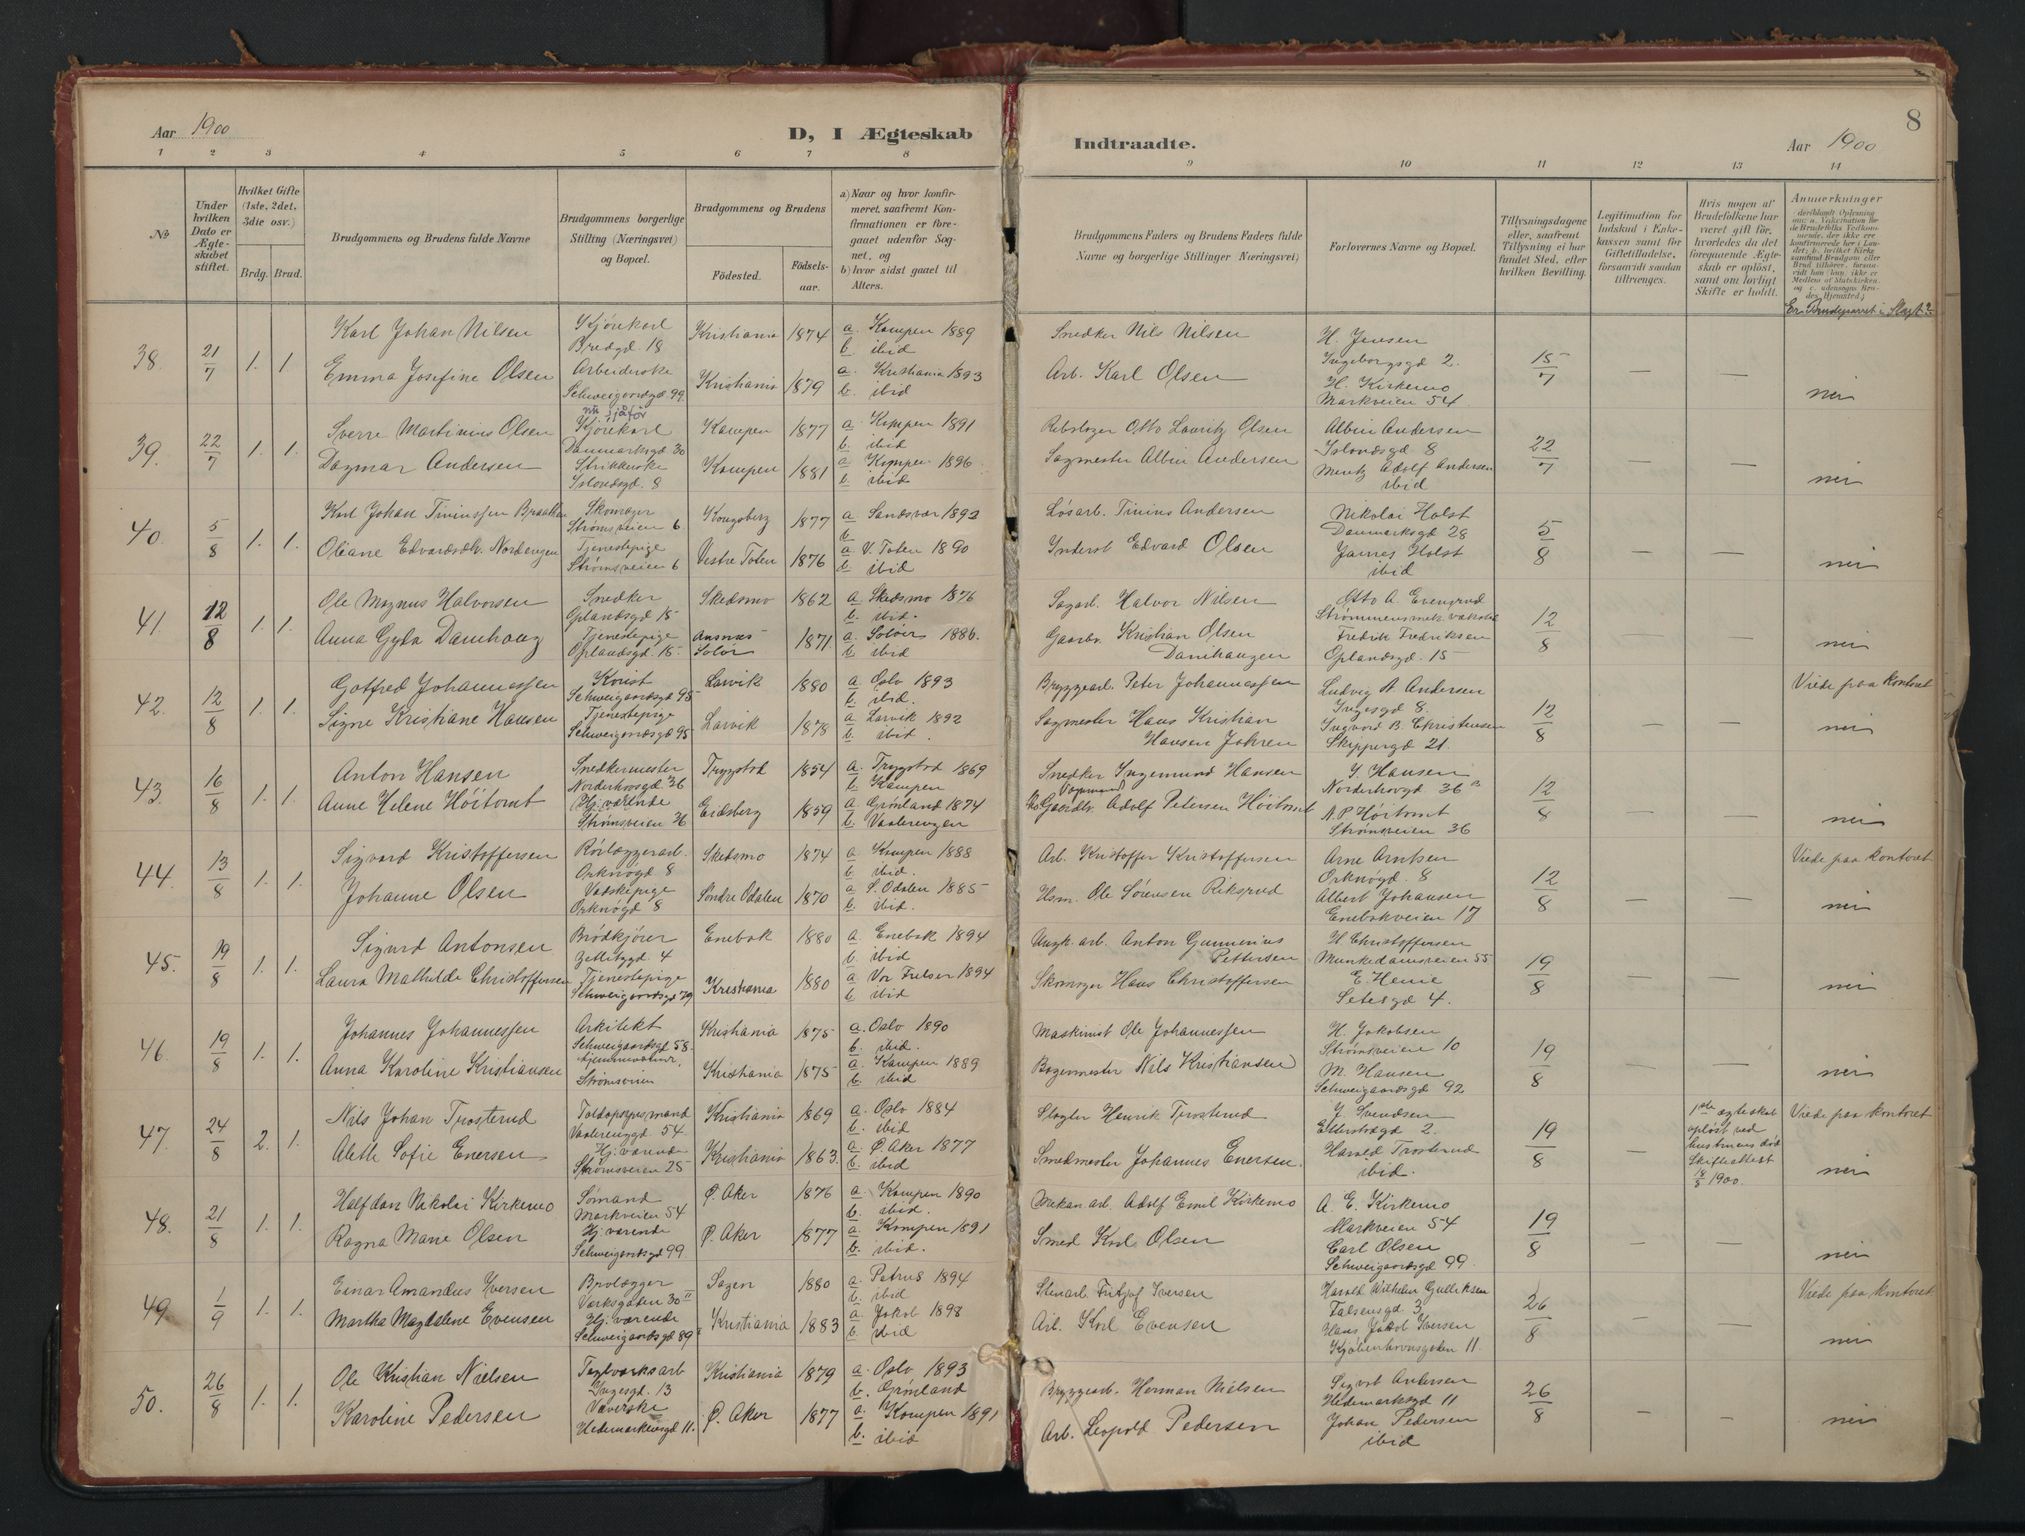 Aar 1900
D, I Ægteskab
Indtraadte.
Aar 1900
8
1 2 3 4 5 6 7 8 9 10 11 12 13 14
№
Under hvilken Dato er Ægteskabet stiftet.
Hvilket Gifte (1ste, 2det, 3die osv.)
Brdg. Brud.
Brudgommens og Brudens fulde Navne
Brudgommens borgerlige Stilling (Næringsvei) og Bopæl.
Brudgommens og Brudens
Födested.
Födselsaar.
a) Naar og hvor konfirmeret, saafremt Konfirmationen er foregaaet udenfor Sognet, og
b) hvor sidst gaaet til Alters.
Brudgommens Faders og Brudens Faders fulde Navne og borgerlige Stillinger Næringsvei)
Forlovernes Navne og Bopæl.
Tillysningsdagene eller, saafremt Tillysning ei har fundet Sted, efter hvilken Bevilling.
Legitimation for Indskud i Enkekassen samt for Giftetilladelse, forsaavidt saadan tiltrænges.
Hvis nogen af Brudefolkene har været gift før, hvorledes da det foregaaende Ægteskab er opløst, samt om lovligt Skifte er holdt.
Anmerkninger
Er Brudeparret i Slægt?
38. 21/7 1. 1 Karl Johan Nilsen Kjørekarl Bredgd. 18 Kristiania 1874 a. Kampen 1889 b. ibid Snedker Nils Nilsen H. Jensen Ingeborgsgd 2. 15/7 — —
Emma Josefine Olsen Arbeiderske Schweigaardsgd. 99. Kristiania 1879 a. Kristiania 1893 b. ibid Arb. Karl Olsen H. Kirkemo Markveien 54 nei
39. 22/7 1. 1. Sverre Martinius Olsen nu sjåfør Kjørekarl Danmarksgd 30 Kampen 1877 a. Kampen 1891 b. ibid Rebslager Otto Lauritz Olsen Albin Andersen Islandsgd 8 22/7 — —
Dagmar Andersen Strikkerske Islandsgd. 8 Kampen 1881 a. Kampen 1896 b. ibid Sagmester Albin Andersen Mentz Adolf Andersen ibid nei
40. 5/8 1. 1. Karl Johan Tiniussen Braathen Skomager Strømsveien 6 Kongsberg 1877 a. Sandsvær 1892 Løsarb. Tinius Andersen Nikolai Holst Danmarksgd 28 5/8 — —
Oliane Edvardsdtr. Nordengen Tjenestepige Strømsveien 6 Vestre Toten 1876 a. V. Toten 1890 b. ibid Inderst Edvard Olsen James Holst ibid nei
41. 12/8 1. 1. Ole Magnus Halvorsen Snedker Oplandsgd 15 Skedsmo 1862 a. Skedsmo 1876 b. ibid. Sagarb. Halvor Nilsen Otto A. Evensrud 12/8 — —
Anna Gyda Damhaug Tjenestepige Oplandsgd. 15. Aasnæs Solør 1871. a. Solør 1886. b. ibid Gaardbr. Kristian Olsen Damhaugen Fredrik Fredriksen Oplandsgd. 15 nei
42. 12/8 1. 1. Gotfred Johannessen Schweigaardsgd 95 Larvik 1880 a. Oslo 1893 b. ibid. Bryggearb. Peter Johannessen Ludvig A. Andersen Ingesgd 8. 12/8 — — Viede paa kontoret
Signe Kristiane Hansen Tjenestepige Schweigaardsgd 95 Larvik 1878 a. Larvik 1892 b. ibid. Sagmester Hans Kristian Hansen Ingvard B. Christensen Skippergd 21. nei
43. 16/8 1. 1. Anton Hansen Snedkermester Norderhovsgd 36 Trygstad 1854 a. Trygstad 1869 b. Kampen Snedker Ingemund Hansen J. Hansen Norderhovgd 36 a 12/8 — —
Anne Helene Höitomt Hj. værende Strømsveien 36 Eidsberg 1859 a. Grønland 1874 b. Vaalerengen Gaardbr. Adolf Petersen Höitomt N. P. Höitomt Strømsveien 36 nei
44. 13/8 1. 1. Sigvard Kristoffersen Rørlæggerarb. Orknøgd 8 Skedsmo 1874 a. Kampen 1888 b. ibid. Arb. Kristoffer Kristoffersen Arne Arntsen Orknøgd. 8 12/8 — — Viede paa kontoret
Johanne Olsen Vadskepige Orknøgd 8 Søndre Odalen 1870 a. S. Odalen 1885 b. ibid. Hsm. Ole Sørensen Riksrud Albert Johansen Enebakveien 17 nei
45. 19/8 1. 1. Sigurd Antonsen Brødkjører Zetlitzgd. 4 Enebak 1880 a. Enebak 1894 b. ibid Anton Gunnerius Pettersen H. Christoffersen Munkedamsveien 55 19/8 — —
Laura Mathilde Christoffersen Tjenestepige Schweigaardsgd 79 Kristiania 1880 a. Vor Frelser 1894 b. ibid Skomager Hans Christoffersen E. Henie Setesgd 4. nei
46. 19/8 1. 1. Johannes Johannessen Arkitekt Schweigaardsgd 58. Kristiania 1875 a. Oslo 1890 b. ibid. Maskinist Ole Johannessen H. Jakobsen Strømsveien 10 19/8 — —
Anna Karoline Kristiansen Hjemmeværende Strømsveien Kristiania 1875 a. Kampen 1889 b. ibid Bogermester Nils Kristiansen M. Hansen Schweigaardsgd 92 nei
47. 24/8 2. 1. Nils Johan Trosterud Toldopsynsmand Vaalerenggd. 54 Kristiania 1869 a. Oslo 1884 b. ibid Slagter Henrik Trosterud J. Svendsen Etterstadgd 2. 19/8 — 1ste ægteskab opløst ved hustruens død Skifteattest 18/8 1900. Viede paa kontoret
Alette Sofie Enersen Hj. værende Strømsveien 25 Kristiania 1863. a. Ø. Aker 1877 b. ibid Smedmester Johannes Enersen. Harald Trosterud ibid. nei
48. 21/8 1. 1. Halfdan Nikolai Kirkemo Sømand Markveien 54 Ø. Aker 1876 a. Kampen 1890 b. ibid. Mekan. arb. Adolf Emil Kirkemo A. E. Kirkemo Markveien 54 19/8 — —
Ragna Marie Olsen Hj. værende Schweigaardsgd 99. Ø. Aker 1877 a. Kampen 1891 b. ibid. Smed Karl Olsen Carl Olsen Schweigaardsgd 99. nei
49. 1/9 1. 1. Einar Amandus Iversen Brolægger Værksgaden 30 II Sagen 1880 a. Petrus 1894 b. ibid Stenarb. Fritjof Iversen Harald Wilhelm Gulliksen Falsensgd. 3 26/8 — — Viede paa kontoret
Martha Magdalene Evensen Hj. værende Schweigaardsgd 89 Kristiania 1883 a. Jakob 1898 b. ibid Arb. Karl Evensen Hans Jakob Iversen Kjøbenhavnsgaden 11. nei
50. 26/8 1. 1. Ole Kristian Nielsen Teglværksarb Ingesgd. 13 Kristiania 1879 a. Oslo 1893 b. Grønland Bryggearb. Herman Nielsen Sigvat Andersen Hedemarksgd 11 26/8 — —
Karoline Pedersen Væverske Hedemarksgd 11. Ø. Aker 1877 a. Kampen 1891 b. ibid Arb. Leopold Pedersen Johan Pedersen ibid nei